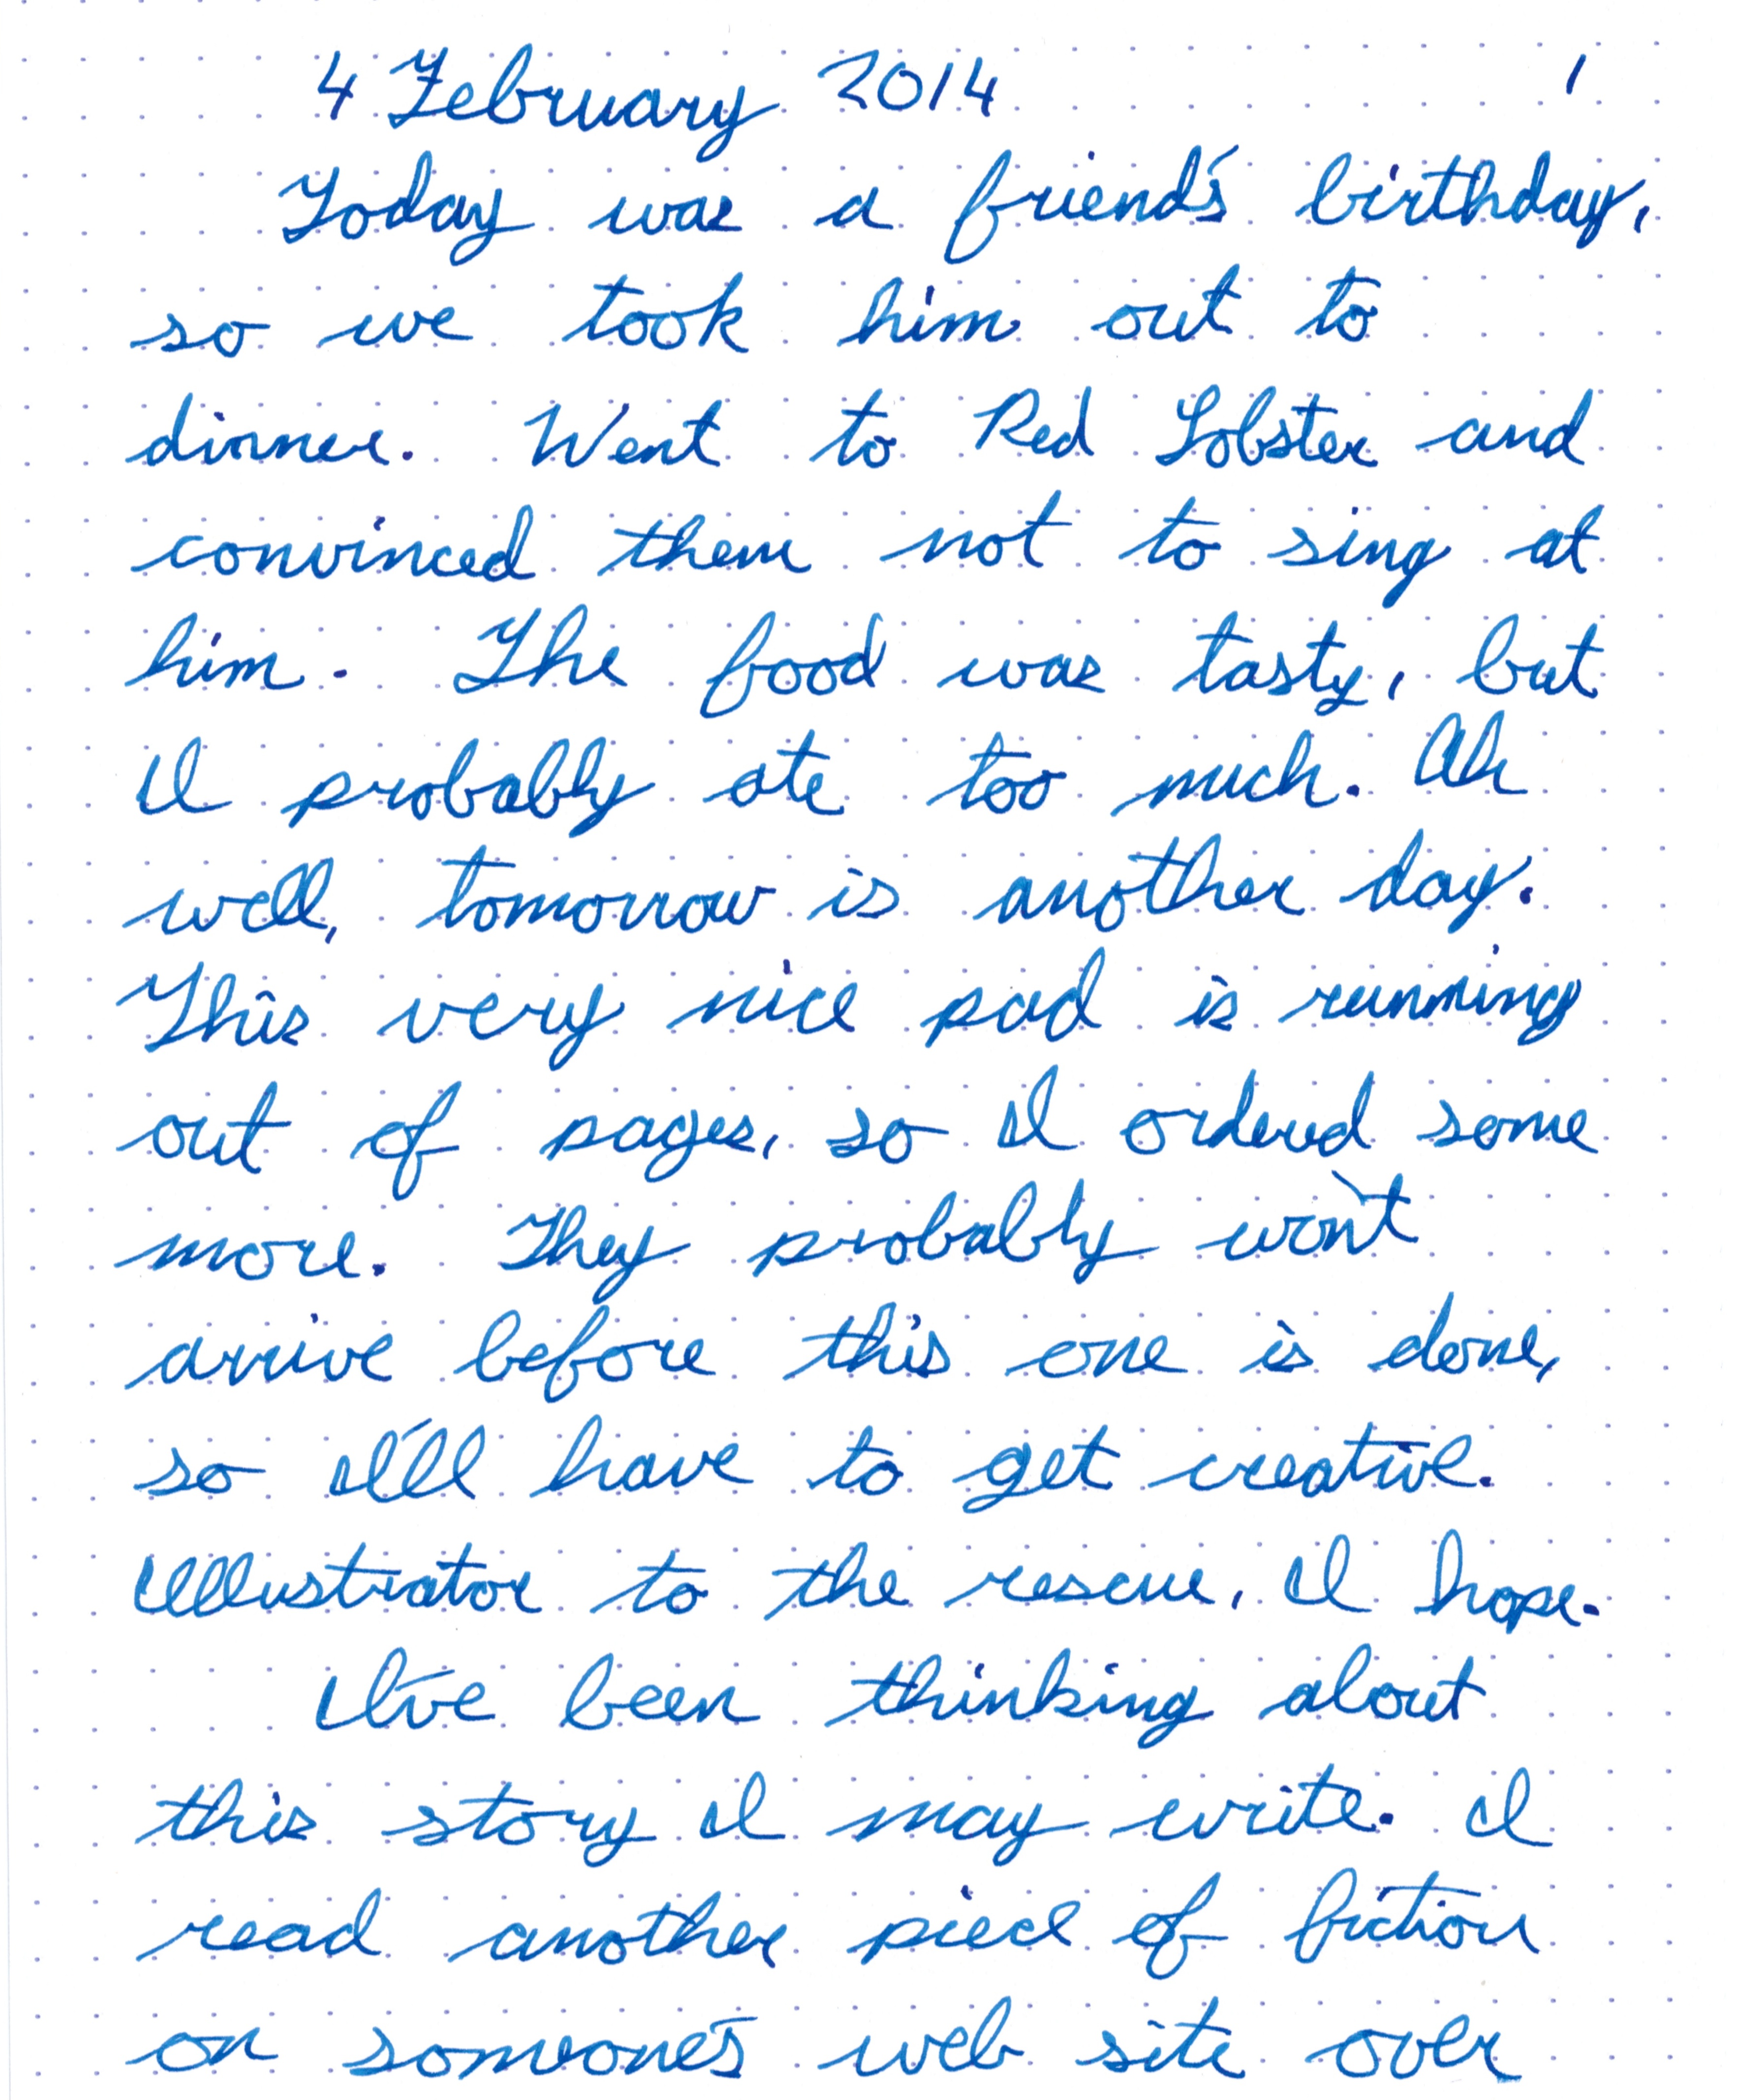 4 February 2014 1
Today was a friend's birthday,
so we took him out to
dinner. Went to Red Lobster and
convinced them not to sing at
him. The food was tasty, but
I probably ate too much. Ah
well, tomorrow is another day.
This very nice pad is running
out of pages, so I ordered some
more. They probably won't
arrive before this one is done,
so I'll have to get creative.
Illustrator to the rescue, I hope.
I've been thinking about
this story I may write. I
read another piece of fiction
on someone's web site over